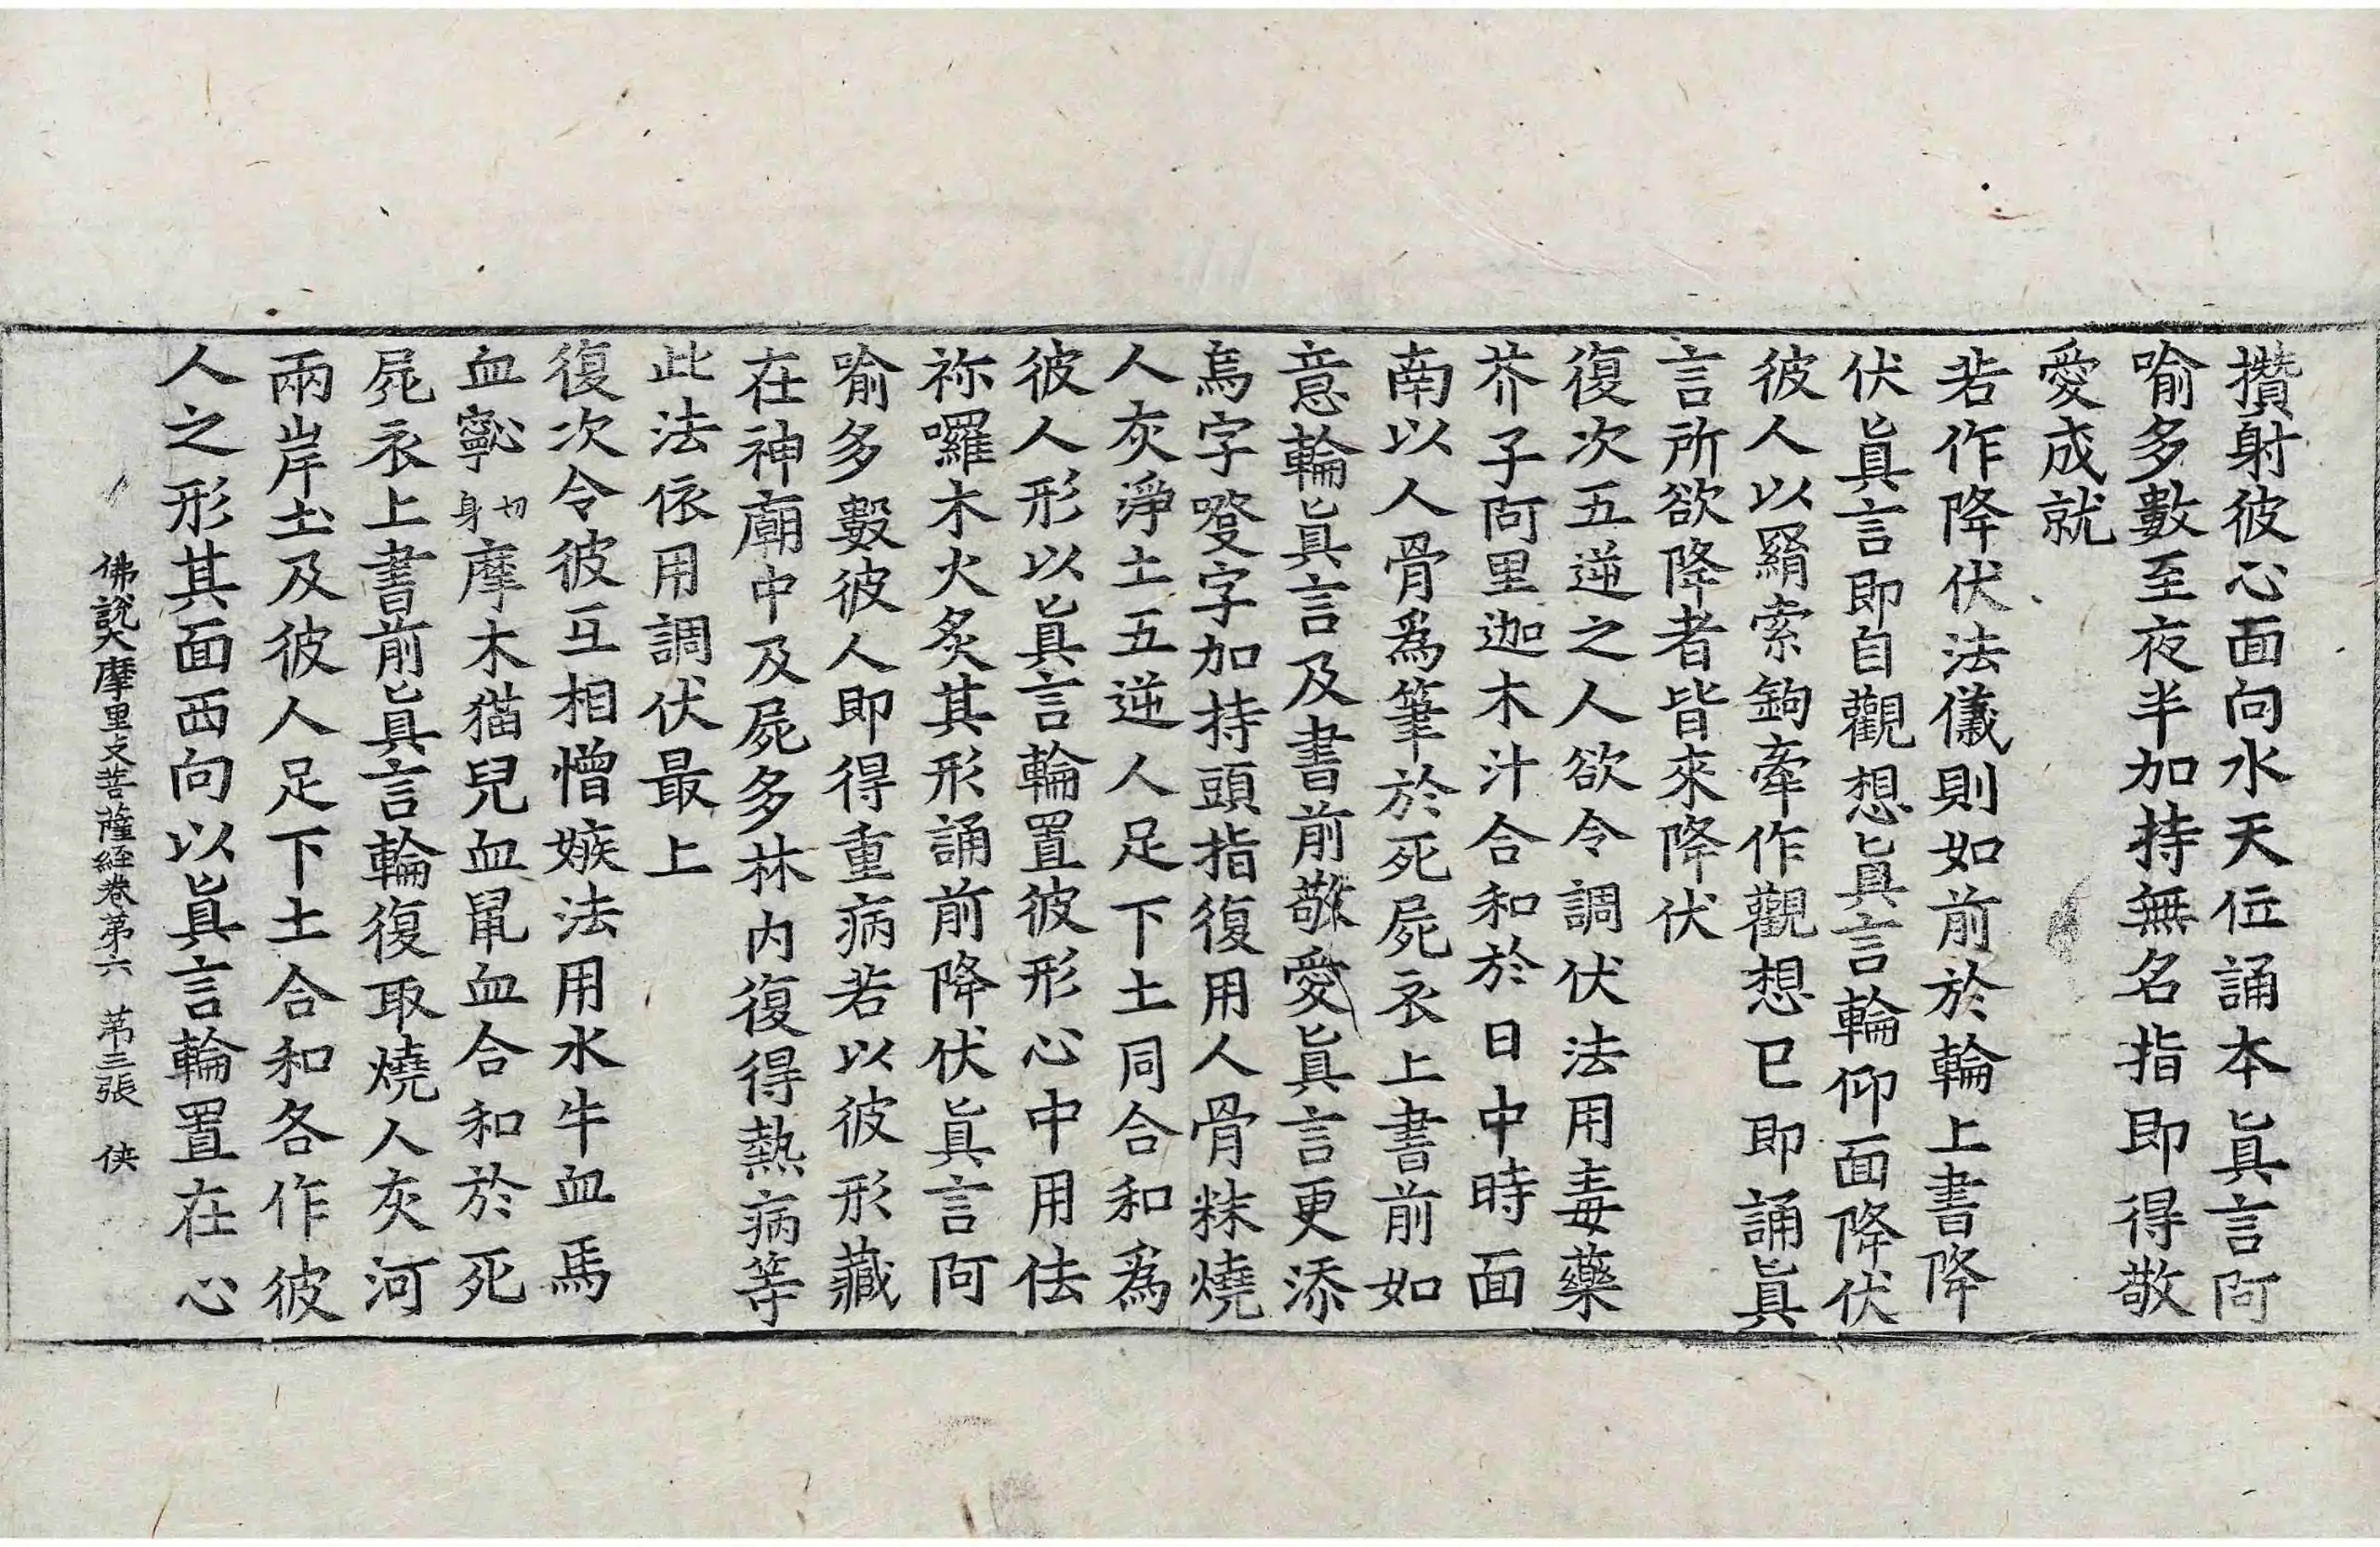 攢射彼心面向水天位誦本眞言阿
喻多數至夜半加持無名指即得敬
愛成就
若作降伏法儀則如前於輪上書降
伏眞言即自觀想眞言輪仰面降伏
彼人以羂索鉤牽作觀想已即誦眞
言所欲降者皆來降伏
復次五逆之人欲令調伏法用毒藥
芥子阿里迦木汁合和於日中時面
南以人骨爲筆於死屍衣上書前如
意輪眞言及書前敬愛眞言更添
烏字㗳字加持頭指復用人骨粖燒
人灰淨土五逆人足下土同合和爲
彼人形以眞言輪置彼形心中用佉
祢囉木火炙其形誦前降伏眞言阿
喻多數彼人即得重病若以彼形藏
在神廟中及屍多林内復得熱病等
此法依用調伏最上
復次令彼互相憎嫉法用水牛血馬
血㝰切身摩木猫兒血鼠血合和於死
屍衣上書前眞言輪復取燒人灰河
兩岸土及彼人足下土合和各作彼
人之形其面西向以眞言輪置在心
佛說大摩里支菩薩経卷第六 第三張 俠